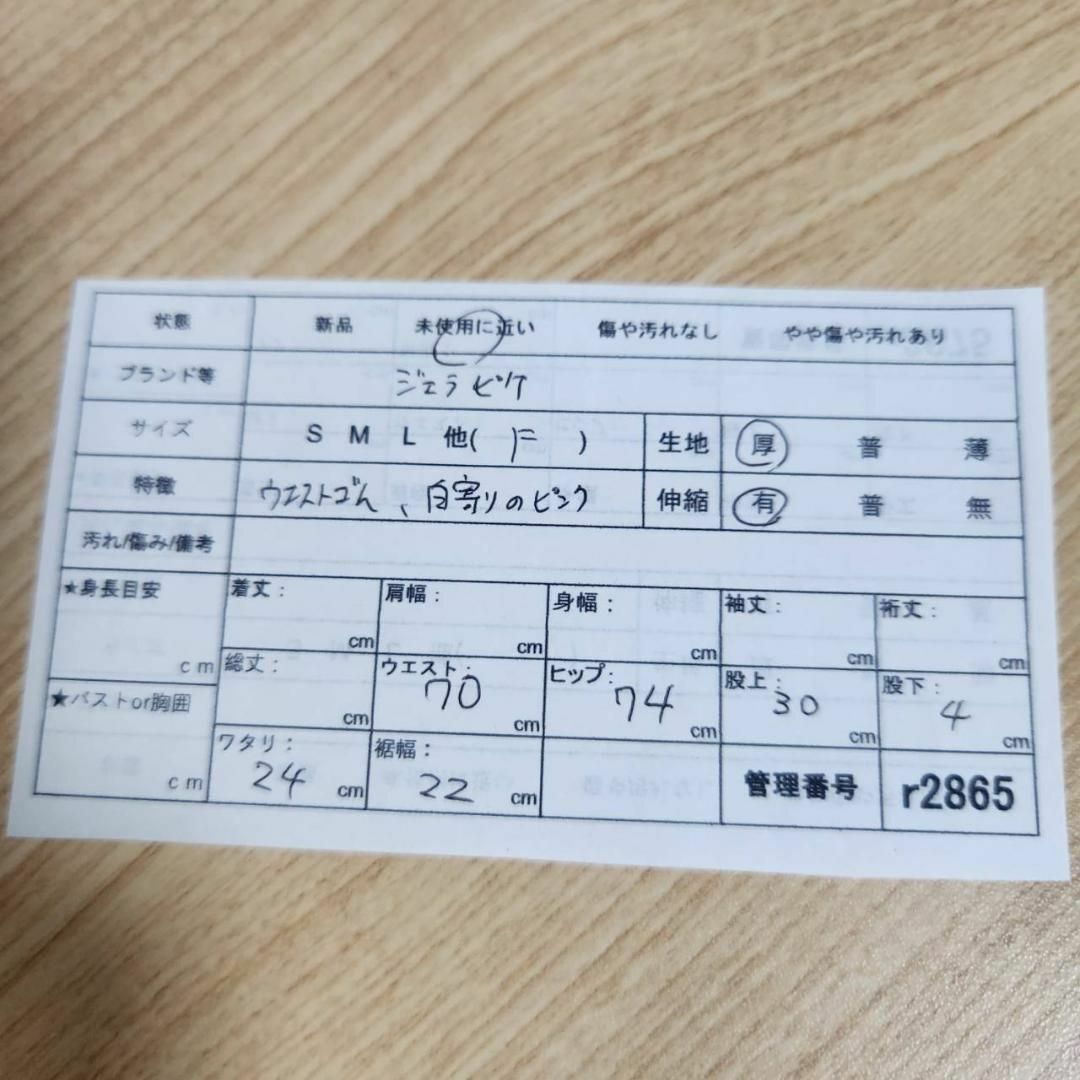 状態 新品 未使用に近い 傷や汚れなし やや傷や汚れあり
ブランド等 ジェラピケ
サイズ S M L 他( F ) 生地 厚 普 薄
特徴 ウエストゴム、白寄りのピンク 伸縮 有 普 無
汚れ/傷み/備考
★身長目安 cm 着丈: cm 肩幅: cm 身幅: cm 袖丈: cm 裄丈: cm
★バストor胸囲 cm 総丈: cm ウエスト: 70 cm ヒップ: 74 cm 股上: 30 cm 股下: 4 cm
ワタリ: 24 cm 裾幅: 22 cm 管理番号 r2865